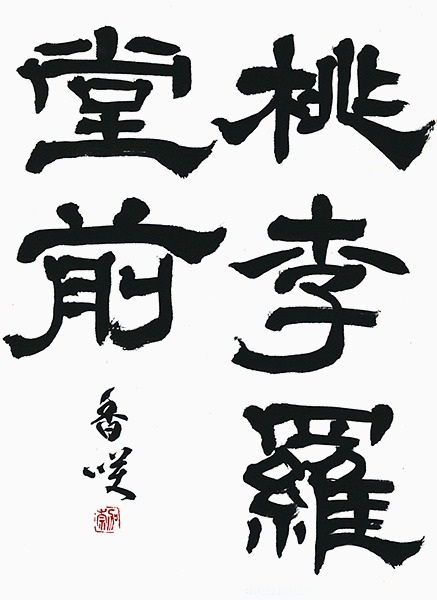 桃李羅
堂前
香咲